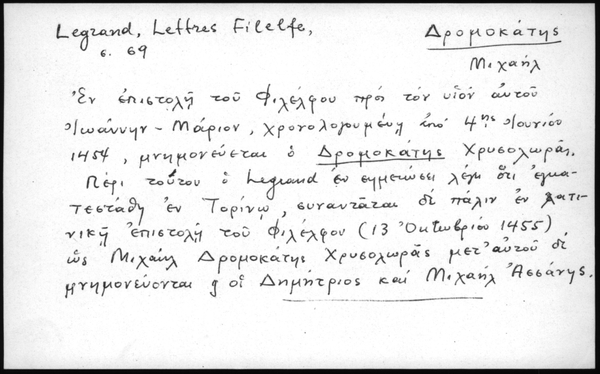 Legrand, Lettres Filelfe,
ς. 69
Δρομοκάτης
Μιχαήλ
Ἐν ἐπιστολῇ τοῦ Φιλέλφου πρός τόν υἱόν αὐτοῦ
Ἰωάννην-Μάριον, χρονολογουμένῃ ἀπό 4ης Ἰουνίου
1454, μνημονεύεται ὁ Δρομοκάτης Χρυσολωρᾶς.
Περί τούτου ὁ Legrand ἐν σημειώσει λέγει ὅτι ἐγκα-
τεστάθη ἐν Τορίνῳ, συναντᾶται δέ πάλιν ἐν λατι-
νικῇ ἐπιστολῇ τοῦ Φιλέλφου (13 Ὀκτωβρίου 1455)
ὡς Μιχαήλ Δρομοκάτης Χρυσολωρᾶς μετ' αὐτοῦ δέ
μνημονεύονται οἱ Δημήτριος καί Μιχαήλ Ἀσσάνης.